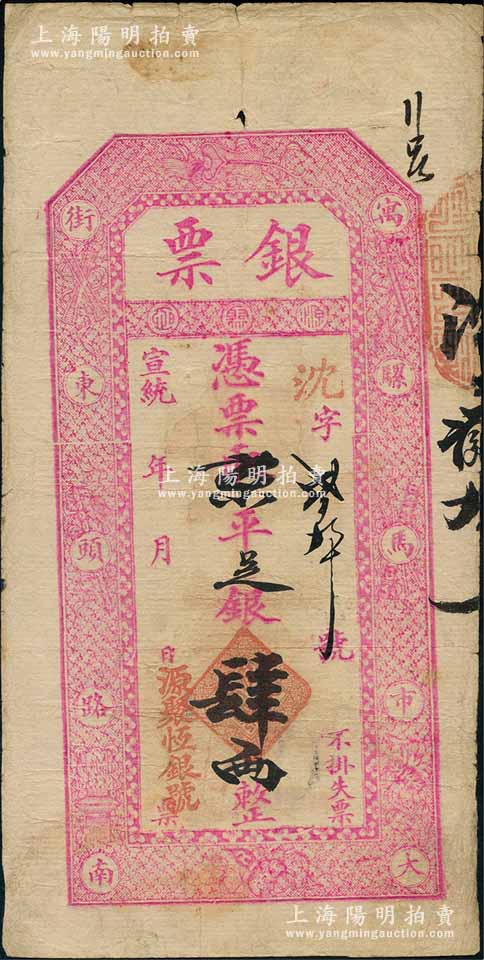 上海陽明拍賣
www.yangmingauction.com
銀票
源聚恒
沈字
號
不掛失票
憑票
平足銀
肆兩
整
宣統
年
月
日
源聚恒銀號
票
寓騾馬市大
街東頭路南
上海陽明拍賣
www.yangmingauction.com
上海陽明拍賣
www.yangmingauction.com